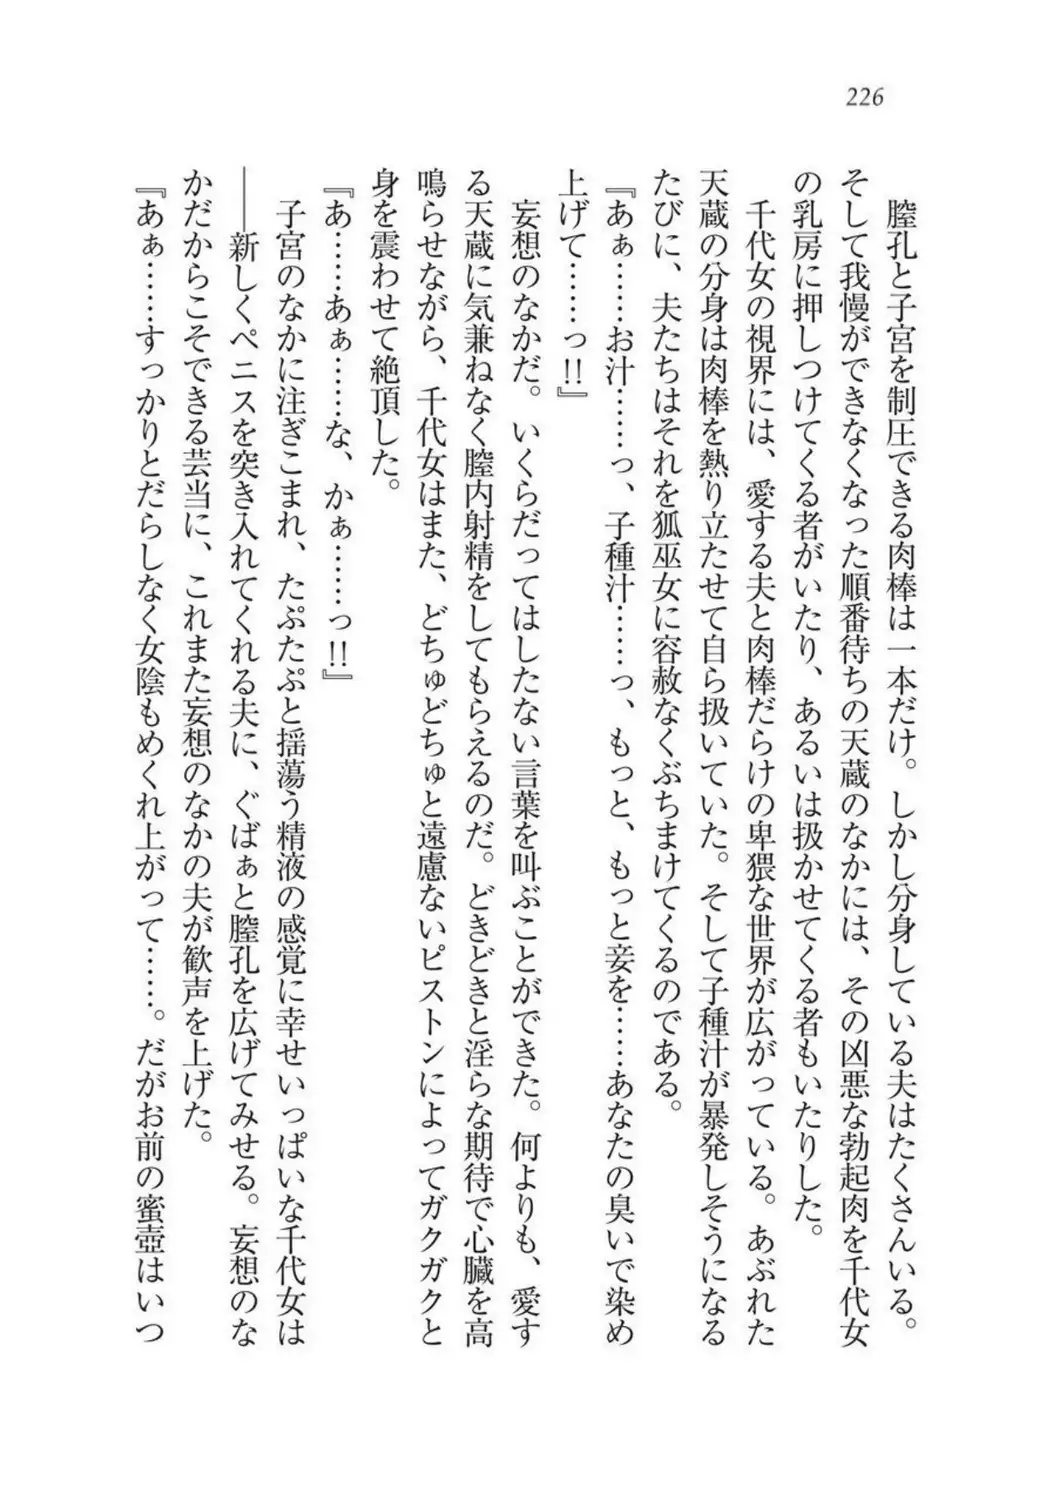 226
膣孔と子宮を制圧できる肉棒は一本だけ。しかし分身している夫はたくさんいる。
そして我慢ができなくなった順番待ちの天蔵のなかには、その凶悪な勃起肉を千代女
の乳房に押しつけてくる者がいたり、あるいは扱かせてくる者もいたりした。
千代女の視界には、愛する夫と肉棒だらけの卑猥な世界が広がっている。あぶれた
天蔵の分身は肉棒を熱り立たせて自ら扱いていた。そして子種汁が暴発しそうになる
たびに、夫たちはそれを狐巫女に容赦なくぶちまけてくるのである。
『あぁ……お汁……っ、子種汁……っ、もっと、もっと妾を……あなたの臭いで染め
上げて……っ!!』
妄想のなかだ。いくらだってはしたない言葉を叫ぶことができた。何よりも、愛す
る天蔵に気兼ねなく膣内射精をしてもらえるのだ。どきどきと淫らな期待で心臓を高
鳴らせながら、千代女はまた、どちゅどちゅと遠慮ないピストンによってガクガクと
身を震わせて絶頂した。
『あ……あぁ……な、かぁ……っ!!』
子宮のなかに注ぎこまれ、たぷたぷと揺蕩う精液の感覚に幸せいっぱいな千代女は
――新しくペニスを突き入れてくれる夫に、ぐばぁと膣孔を広げてみせる。妄想のな
かだからこそできる芸当に、これまた妄想のなかの夫が歓声を上げた。
『あぁ……すっかりとだらしなく女陰もめくれ上がって……。だがお前の蜜壺はいつ